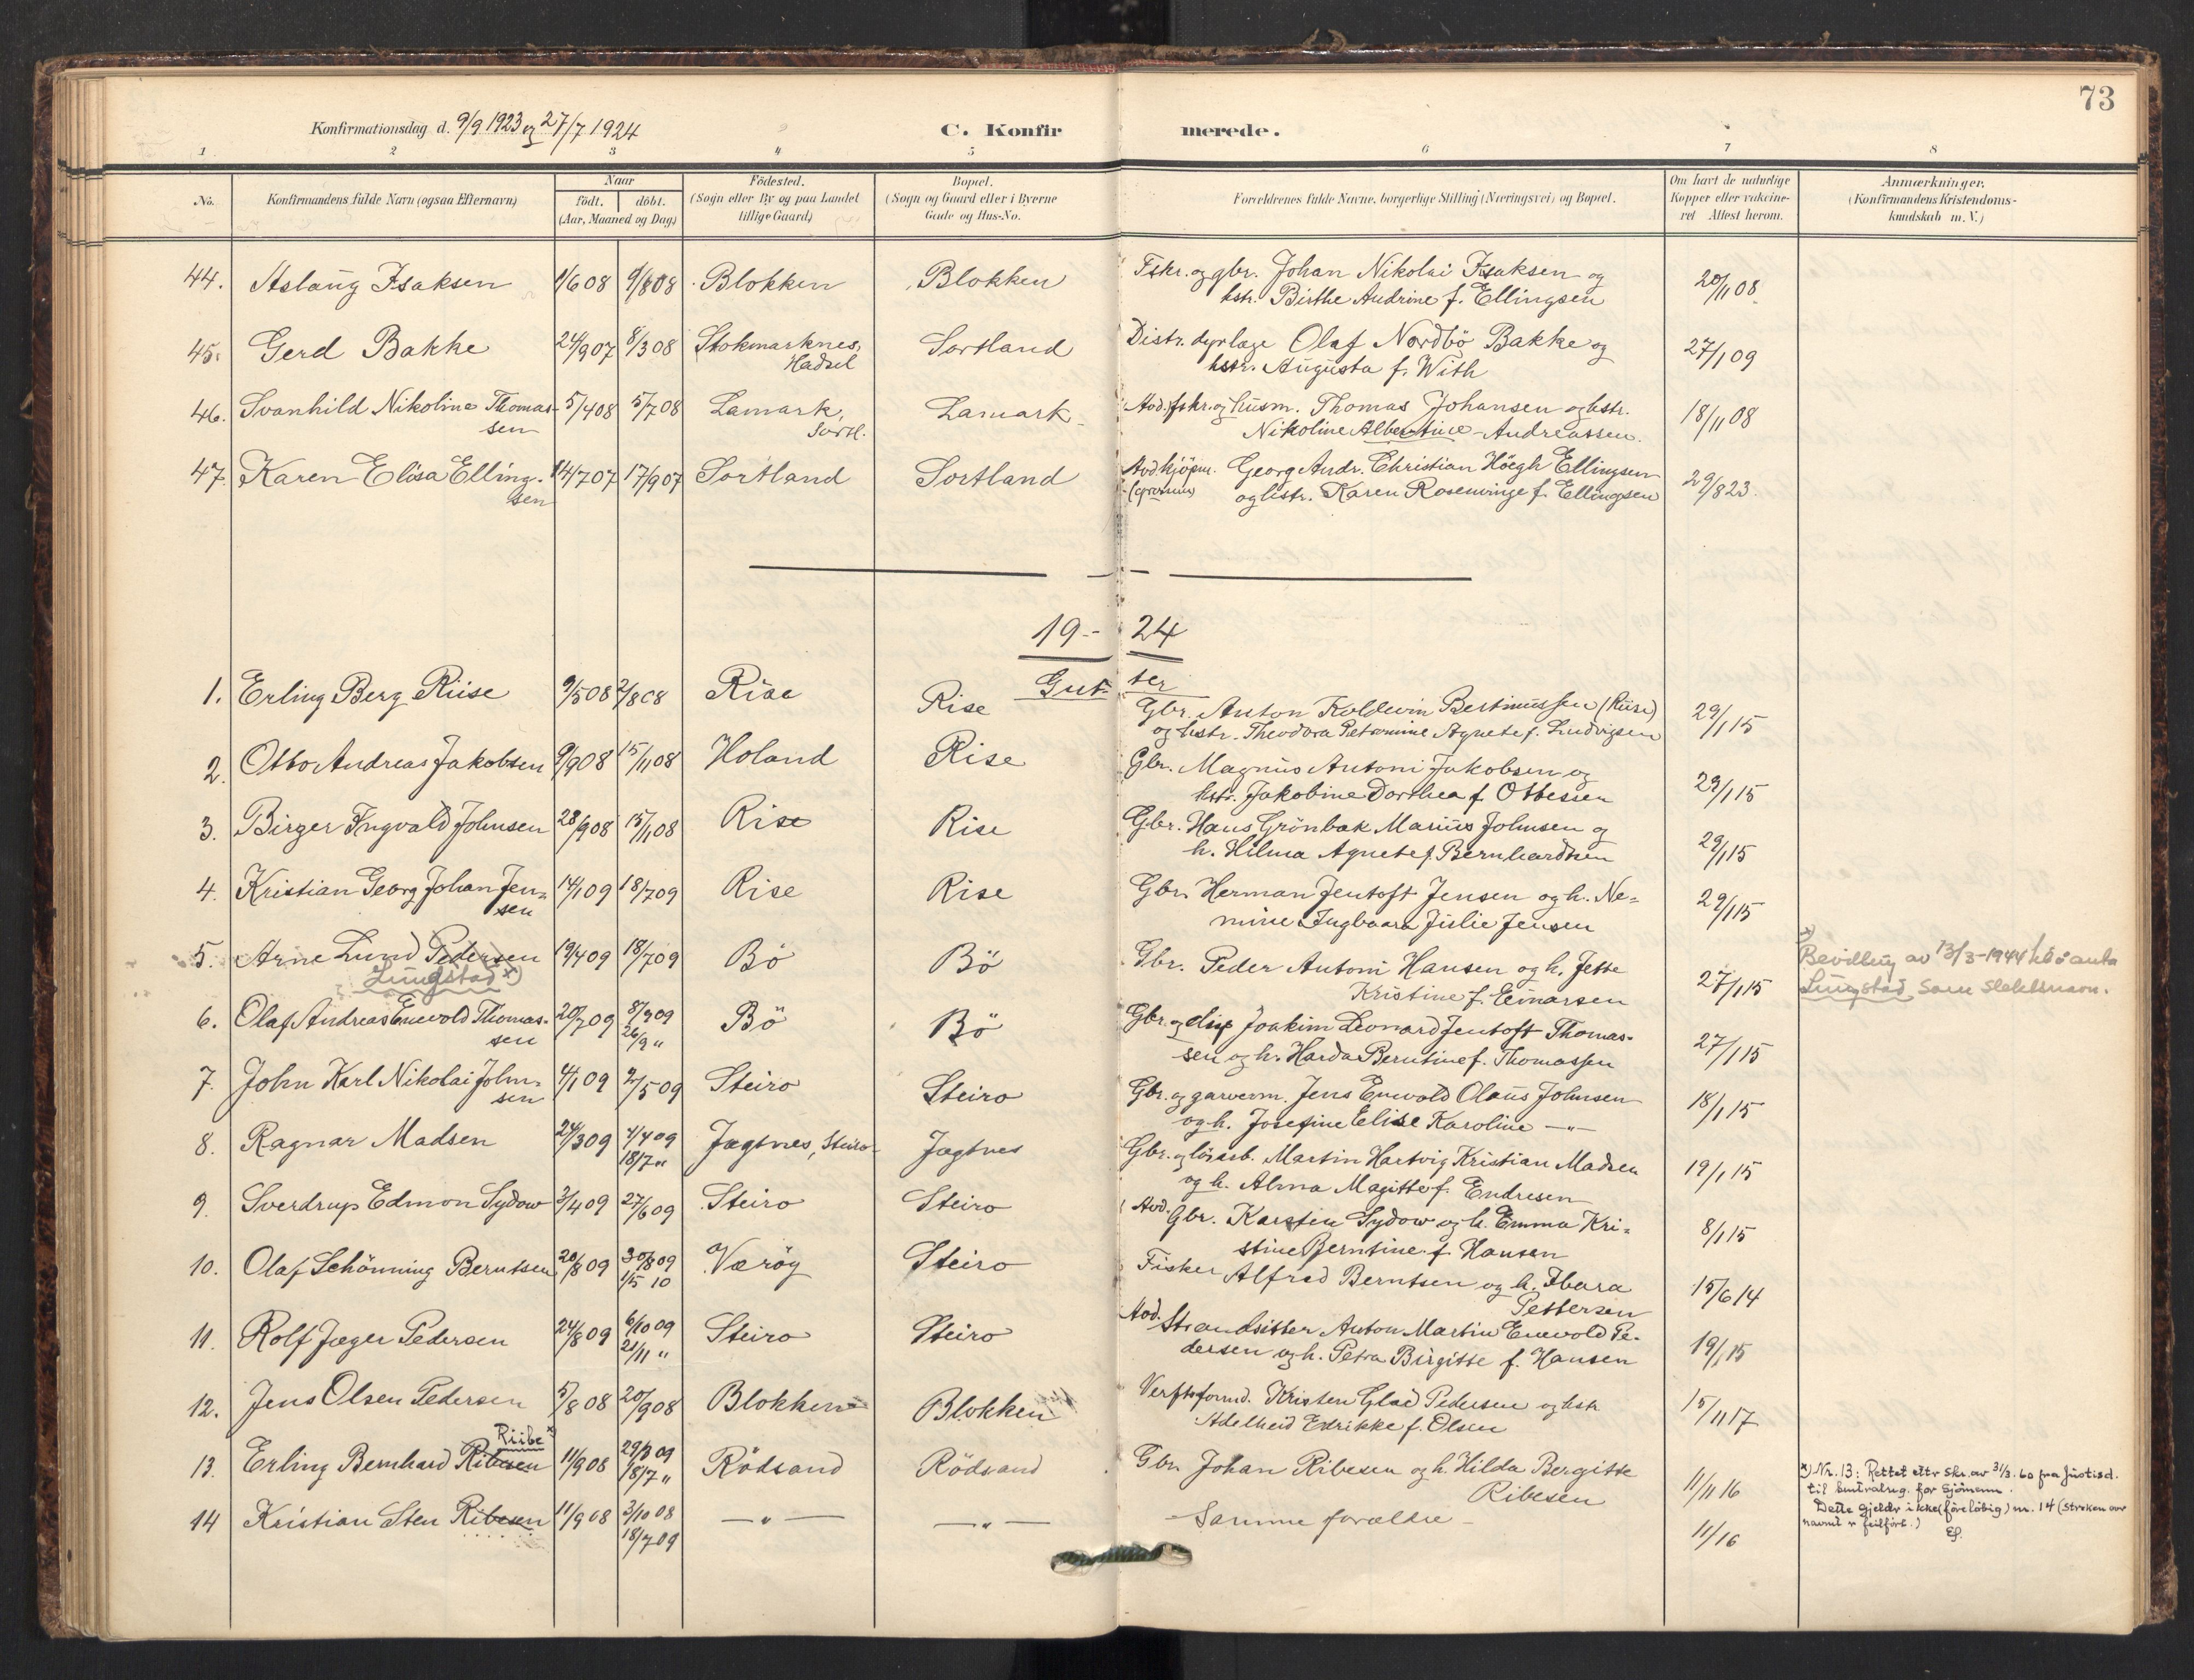 73
Konfirmationsdag d. 9/9 1923 og 27/7 1924
C. Konfirmerede.
1 2 3 4 5 6 7 8
No.
Konfirmandens fulde Navn (ogsaa Efternavn)
Naar
födt. döbt.
(Aar, Maaned og Dag)
Födested.
(Sogn eller By og paa Landet
tillige Gaard)
Bopæl.
(Sogn og Gaard eller i Byerne
Gade og Hus-No.
Forældrenes fulde Navne, borgerlige Stilling (Næringsvei) og Bopæl.
Om havt de naturlige
Kopper eller vakcine-
ret Attest herom.
Anmærkninger.
(Konfirmandens Kristendoms-
kundskab m. V.)
44. Aslaug Isaksen 1/6 08 9/8 08 Blokken Blokken Fskr. og gbr. Johan Nikolai Isaksen og 20/11 08
hstr. Birthe Andrine f. Ellingsen
45. Gerd Bakke 24/9 07 8/3 08 Stokmarknes, Sortland Distr. dyrlæge Olaf Nordbö Bakke og 27/1 09
Hadsel hstr. Augusta f. With
46. Svanhild Nikoline Thomas- 5/4 08 5/7 08 Lamark, Lamark Avd. fskr. og husm. Thomas Johansen og hstr. 18/11 08
sen Sortl. Nikoline Albertine Andreassen.
47. Karen Elisa Elling- 14/7 07 17/9 07 Sortland Sortland Avd kjöpm. Georg Andr. Christian Höegh Ellingsen 29/8 23.
sen og hstr. Karen Rosenvinge f. Ellingsen
19-24
Gutter
1. Erling Berg Riise 9/5 08 2/8 08 Rise Rise Gbr. Anton Koldevin Bertinussen (Riise) 29/1 15
og hstr. Theodora Petromine Agnete f. Ludvigsen
2. Otto Andreas Jakobsen 9/9 08 15/11 08 Holand Rise Gbr. Magnus Antoni Jakobsen og 29/1 15
hstr. Jakobine Dorthea f. Ottessen
3. Birger Ingvald Johnsen 28/9 08 15/11 08 Rise Rise Gbr. Hans Grönbæk Marius Johnsen og 29/1 15
h. Hilma Agnete f. Bernhardtsen
4. Kristian Georg Johan Jen- 14/1 09 18/7 09 Rise Rise Gbr. Herman Jentoft Jensen og h. Ne- 29/1 15
sen mine Ingbaara Julie Jensen
5. Arne Lund Pedersen 19/4 09 18/7 09 Bö Bö Gbr. Peder Antoni Hansen og h. Jette 27/1 15 Bevilling av 13/3-1944 til å anta
Lungstad x) Kristine f. Einarsen Lungstad som slektsnavn.
6. Olaf Andreas Enevold Thomas- 20/7 09 8/9 09 Bö Bö Gbr. og Joakim Leonard Jentoft Thomas- 27/1 15
sen 26/9 " sen og h. Harda Berntine f. Thomassen
7. John Karl Nikolai John- 4/1 09 2/5 09 Steiro Steiro Gbr. og garverm. Jens Enevold Olaus Johnsen 18/1 15
sen og h. Josefine Elise Karoline — " —
8. Ragnar Madsen 24/3 09 4/4 09 Jægtnes, Steiro Jægtnes Gbr. og lösarb. Martin Hartvig Kristian Madsen 19/1 15
18/7 " og h. Alma Magitte f. Endresen
9. Sverdrup Edmon Sydow 3/4 09 27/6 09 Steiro Steiro Avd. Gbr. Karsten Sydow og h. Emma Kri- 8/1 15
stine Berntine f. Hansen
10. Olaf Schönning Berntsen 20/8 09 30/8 09 Værøy Steiro Fisker Alfred Berntsen og h. Thara 15/6 14
1/5 10 Pettersen
11. Rolf Jæger Pedersen 24/8 09 6/10 09 Steiro Steiro Avd. Strandsitter Anton Martin Enevold Pe- 19/1 15
21/11 " dersen og h. Petra Birgitte f. Hansen
12. Jens Olsen Pedersen 5/8 08 20/9 08 Blokken Blokken Verftsformd. Kristen Glad Pedersen og hstr 15/11 17
Adelheid Edrikke f. Olsen
Riibe x)
13. Erling Bernhard Ribesen 11/9 08 29/3 09 Rödsand Rödsand Gbr. Johan Ribesen og h. Hilda Bergitte 11/11 16 x) Nr. 13: Rettet etter skr. av 3/3. 60 fra Justisd.
18/7 " Ribesen til sentralreg. for sjömenn.
14 Kristian Sten Ribesen 11/9 08 3/10 08 — " — — " — Samme forældre 11/16 Dette gjelder ikke (foreløbig) nr. 14 (streken over
18/7 09 navnet er feilført.)